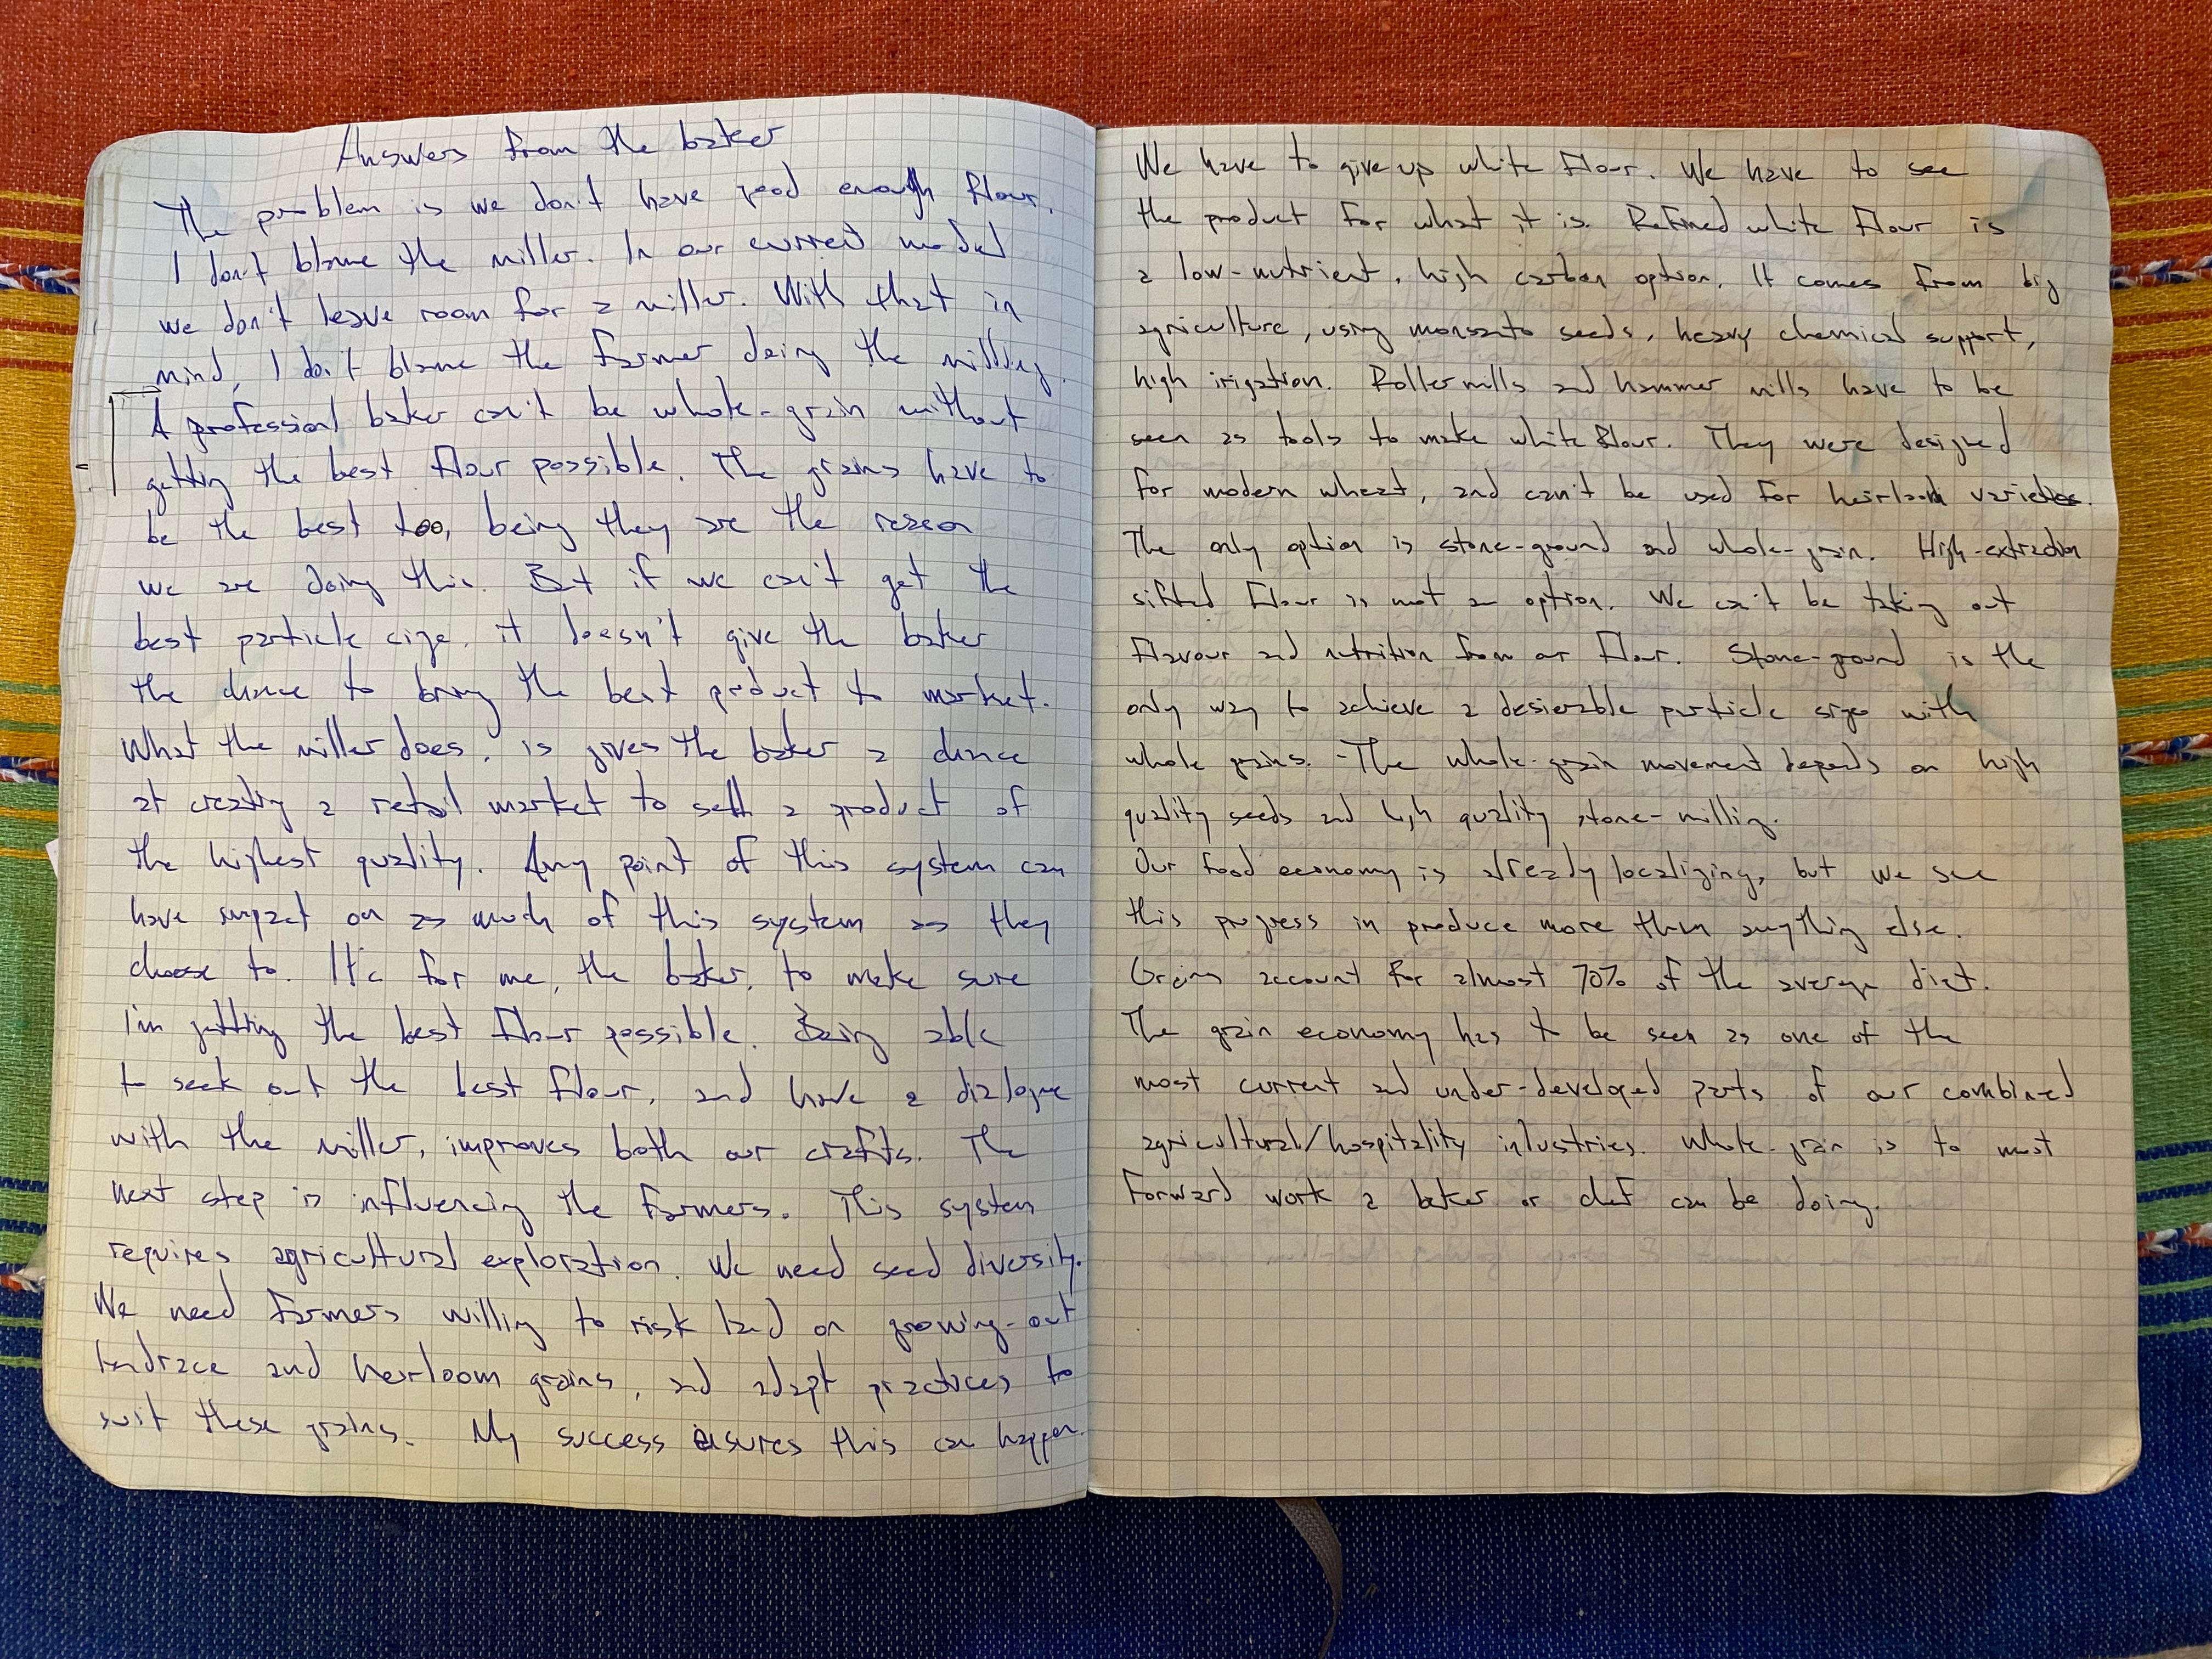 Answers from the baker
The problem is we don't have good enough flour.
I don't blame the miller. In our current model
we don't leave room for a miller. With that in
mind, I don't blame the farmer doing the milling.
A professional baker can't be whole-grain without
getting the best flour possible. The grains have to
be the best too, being they are the reason
we are doing this. But if we can't get the
best particle size, it doesn't give the baker
the chance to bring the best product to market.
What the miller does, is gives the baker a chance
at creating a retail market to sell a product of
the highest quality. Any point of this system can
have impact on as much of this system as they
choose to. It's for me, the baker, to make sure
I'm getting the best flour possible. Being able
to seek out the best flour, and have a dialogue
with the miller, improves both our crafts. The
next step is influencing the farmers. This system
requires agricultural exploration. We need seed diversity.
We need farmers willing to risk land on growing-out
landrace and heirloom grains, and adapt practices to
suit these grains. My success ensures this can happen.
We have to give up white flour. We have to see
the product for what it is. Refined white flour is
a low-nutrient, high carbon option. It comes from big
agriculture, using monsanto seeds, heavy chemical support,
high irigation. Roller mills and hammer mills have to be
seen as tools to make white flour. They were designed
for modern wheat, and can't be used for heirloom varieties.
The only option is stone-ground and whole-grain. High-extraction
sifted flour is not an option. We can't be taking out
flavour and nutrition from our flour. Stone-ground is the
only way to achieve a desierable particle size with
whole grains. The whole-grain movement depends on high
quality seeds and high quality stone-milling.
Our food economy is already localizing, but we see
this progress in produce more than anything else.
Grains account for almost 70% of the average diet.
The grain economy has to be seen as one of the
most current and under-developed parts of our combined
agricultural/hospitality industries. Whole-grain is to most
forward work a baker or chef can be doing.